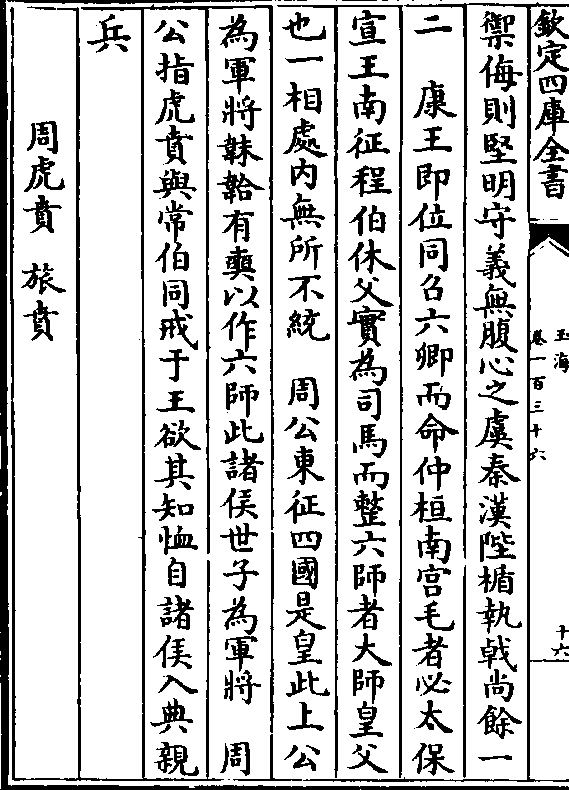 欽定四庫全書
玉海
卷一百三十六
十六
禦侮則堅明守義無腹心之虞秦漢陛楯執戟尚餘一
二　康王即位同召六卿而命仲桓南宫毛者必太保
宣王南征程伯休父實為司馬而整六師者大師皇父
也一相處内無所不統　周公東征四國是皇此上公
為軍將韎韐有奭以作六師此諸侯世子為軍將　周
公指虎賁與常伯同戒于王欲其知恤自諸侯入典親
兵
周虎賁　旅賁